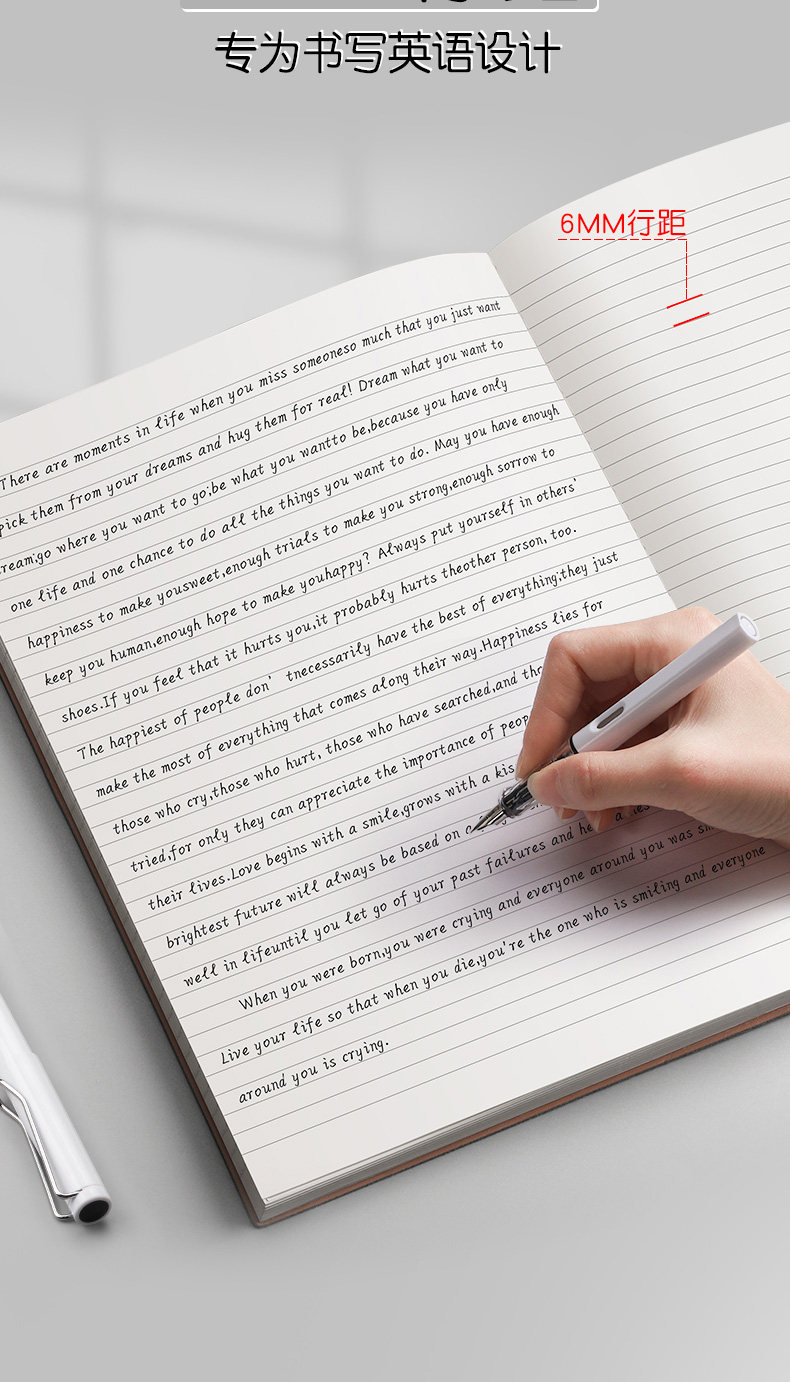 专为书写英语设计
6MM行距
There are moments in life when you miss someoneso much that you just want
pick them from your dreams and hug them for real! Dream what you want to
ream;go where you want to go;be what you wantto be,because you have only
one life and one chance to do all the things you want to do. May you have enough
happiness to make yousweet,enough trials to make you strong,enough sorrow to
keep you human,enough hope to make youhappy? Always put yourself in others'
shoes.If you feel that it hurts you,it probably hurts theother person, too.
The happiest of people don' tnecessarily have the best of everything;they just
make the most of everything that comes along their way.Happiness lies for
those who cry,those who hurt, those who have searched,and tho
tried,for only they can appreciate the importance of peop
their lives.Love begins with a smile,grows with a kis
brightest future will always be based on
well in lifeuntil you let go of your past failures and he
When you were born,you were crying and everyone around you was sm
Live your life so that when you die,you're the one who is smiling and everyone
around you is crying.